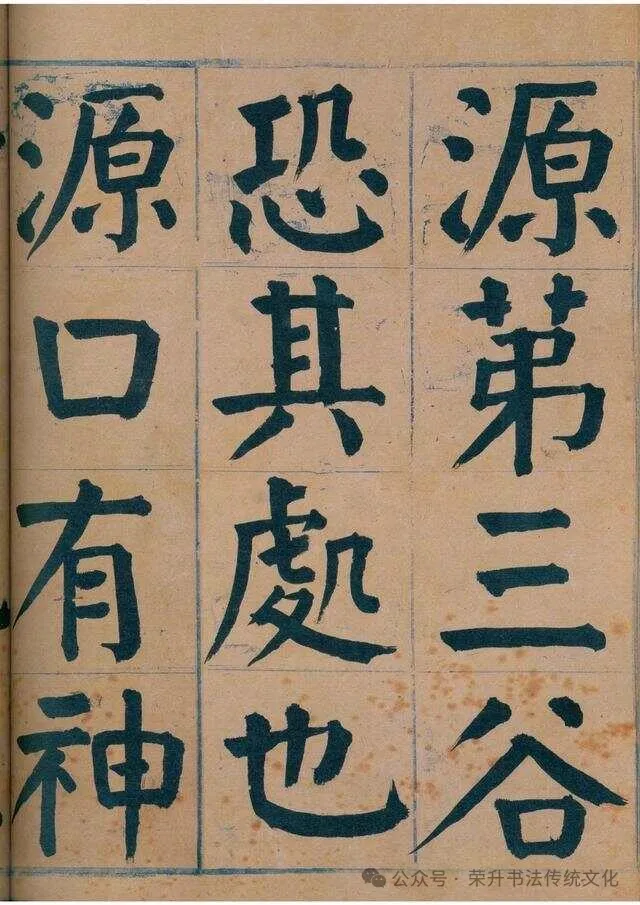 源苐三谷
恐其處也
源口有神
公众号·荣升书法传统文化